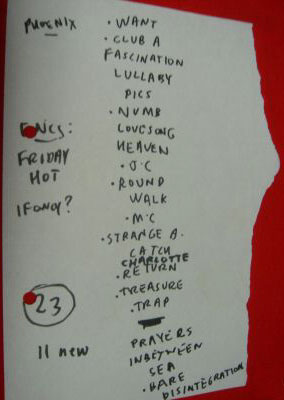 PHOENIX
· WANT
· CLUB A
FASCINATION
LULLABY
PICS
· NUMB
LOVESONG
HEAVEN
· J.C
· ROUND
WALK
· M.C
· STRANGE A.
CATCH
CHARLOTTE
· RETURN
· TREASURE
· TRAP
PRAYERS
INBETWEEN
SEA
· BARE
DISINTEGRATION
ENCS:
FRIDAY
HOT
IFONLY?
23
11 new